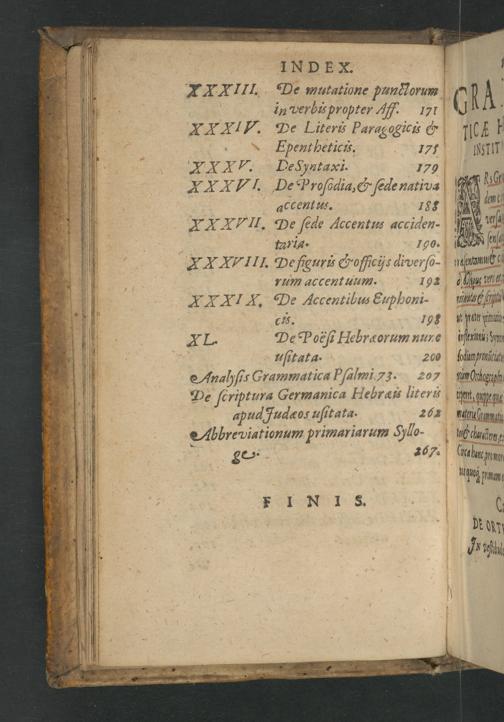 INDEX.
XXXIII. De mutatione punctorum
in verbis propter Aff. 171
XXXIV. De Literis Paragogicis &
Epentheticis. 175
XXXV. De Syntaxi. 179
XXXVI. De Prosodia, & sede nativa
accentus. 188
XXXVII. De sede Accentus acciden-
taria. 190.
XXXVIII. De figuris & officijs diverso-
rum accentuum. 192
XXXIX. De Accentibus Euphoni-
cis. 198
XL. De Poësi Hebræorum nunc
usitata. 200
Analysis Grammatica Psalmi 73. 207
De scriptura Germanica Hebræis literis
apud Judæos usitata. 262
Abbreviationum primariarum Syllo-
ge. 267.
FINIS.
GRA
TICÆ H
INSTIT
DE ORT